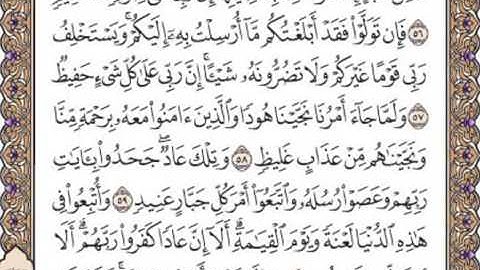 ٥٦ فَإِن تَوَلَّوْا۟ فَقَدْ أَبْلَغْتُكُم مَّآ أُرْسِلْتُ بِهِۦٓ إِلَيْكُمْ ۚ وَيَسْتَخْلِفُ
رَبِّى قَوْمًا غَيْرَكُمْ وَلَا تَضُرُّونَهُۥ شَيْـًٔا ۚ إِنَّ رَبِّى عَلَىٰ كُلِّ شَىْءٍ حَفِيظٌ
٥٧ وَلَمَّا جَآءَ أَمْرُنَا نَجَّيْنَا هُودًا وَٱلَّذِينَ ءَامَنُوا۟ مَعَهُۥ بِرَحْمَةٍ مِّنَّا
وَنَجَّيْنَـٰهُم مِّنْ عَذَابٍ غَلِيظٍ ٥٨ وَتِلْكَ عَادٌ ۖ جَحَدُوا۟ بِـَٔايَـٰتِ
رَبِّهِمْ وَعَصَوْا۟ رُسُلَهُۥ وَٱتَّبَعُوٓا۟ أَمْرَ كُلِّ جَبَّارٍ عَنِيدٍ ٥٩ وَأُتْبِعُوا۟ فِى
هَـٰذِهِ ٱلدُّنْيَا لَعْنَةً وَيَوْمَ ٱلْقِيَـٰمَةِ ۗ أَلَآ إِنَّ عَادًا كَفَرُوا۟ رَبَّهُمْ ۗ أَلَا